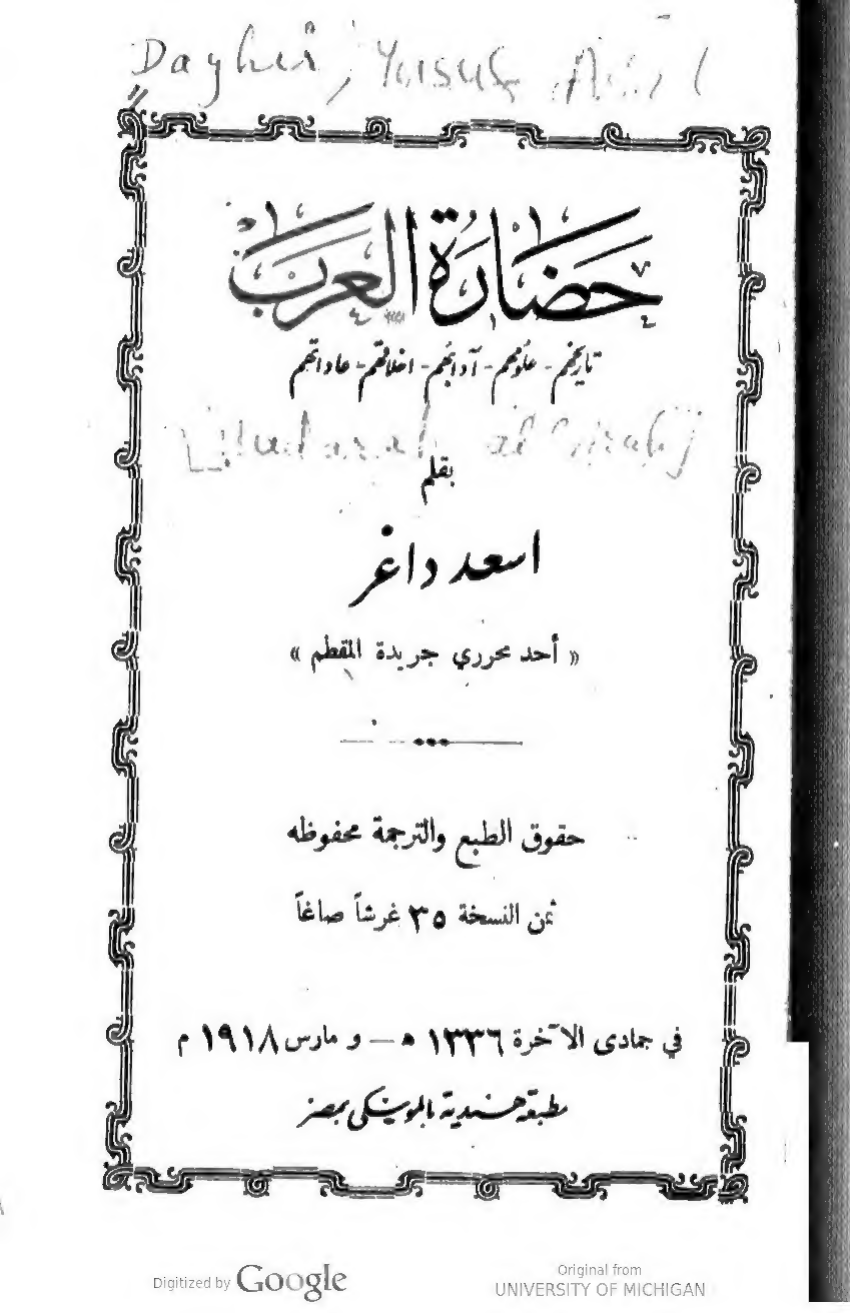 Daghir, Yusuf
حضارة العرب
تاريخهم - علومهم - آدابهم - اخلاقهم - عاداتهم
[Hadarah al
بقلم
اسعد داغر
« أحد محرري جريدة المقطم »
حقوق الطبع والترجمة محفوظه
ثمن النسخة ٣٥ غرشاً صاغاً
في جمادى الآخرة ١٣٣٦ ه — و مارس ١٩١٨ م
مطبعة هندية بالموسكى بمصر
Digitized by Google
Original from
UNIVERSITY OF MICHIGAN